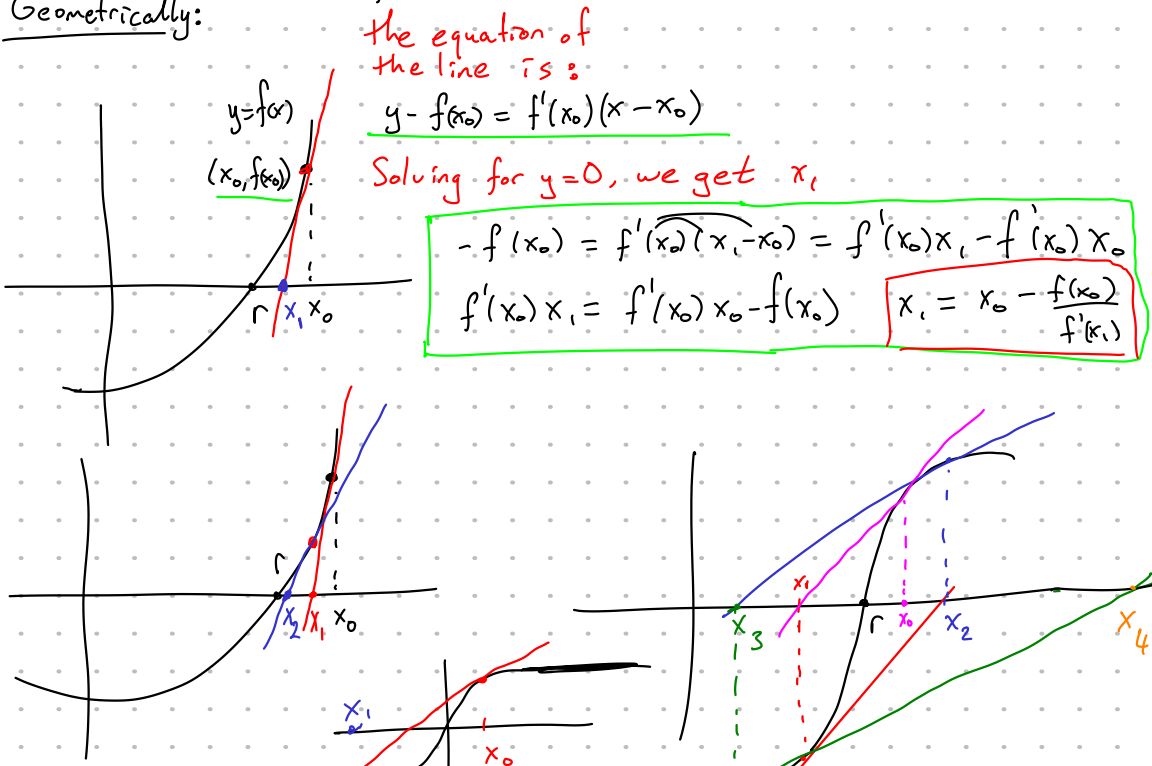 Geometrically:
the equation of
the line is:
y - f(x₀) = f'(x₀)(x - x₀)
y=f(x)
(x₀, f(x₀))
Solving for y=0, we get x₁
-f(x₀) = f'(x₀)(x₁-x₀) = f'(x₀)x₁ - f'(x₀)x₀
f'(x₀)x₁ = f'(x₀)x₀ - f(x₀)
x₁ = x₀ - f(x₀)/f'(x₁)
r x₁ x₀
r
x₂ x₁ x₀
x₁
x₀
x₁
x₃ r x₀ x₂ x₄